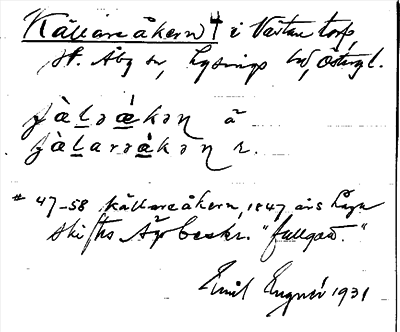 Källareåkern † i Västra torp
St. Åby sn, Lysings hd, Östergl.
jàlǝákǝn ä
jàlarǝákǝn r.
* 47-58 Källareåkern, 1847 års Laga
skiftes Ägobeskr. "fullgod."
Emil 1931